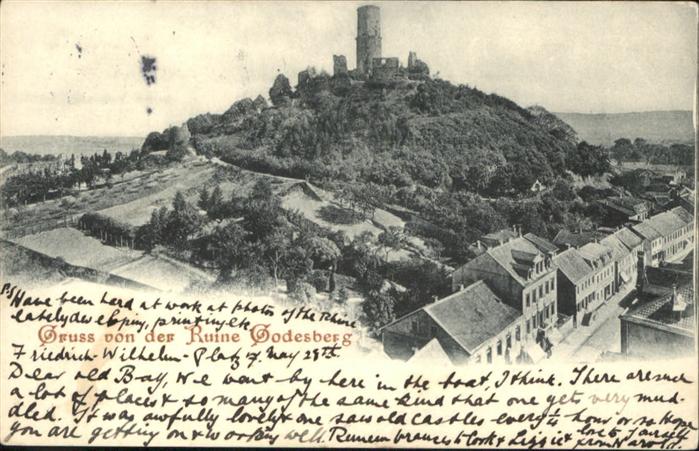 P.S. Have been hard at work at photos of the Rhine
lately developing, printing etc
Gruss von der Ruine Godesberg
Friedrich-Wilhelm-Platz 17. May 29th
Dear old Bay, We went by here in the boat, I think. There are such
a lot of places & so many of the same kind that one gets very mud-
dled. It was awfully lovely & one saw old castles every ¼ hour or so. Hope
you are getting on & working well. Remembrances to Cook & Lizzie & love to yourself
from Harold.